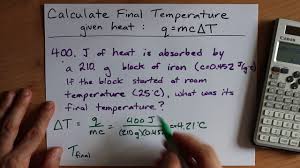 Calculate Final Temperature
given heat : q=mcΔT
400. J of heat is absorbed by
a 210. g block of iron (c=0.452 J/g°C)
If the block started at room
temperature (25°C), what was its
final temperature?
ΔT = q/mc = 400 J/(210g)(0.452) = 4.21°C
T final